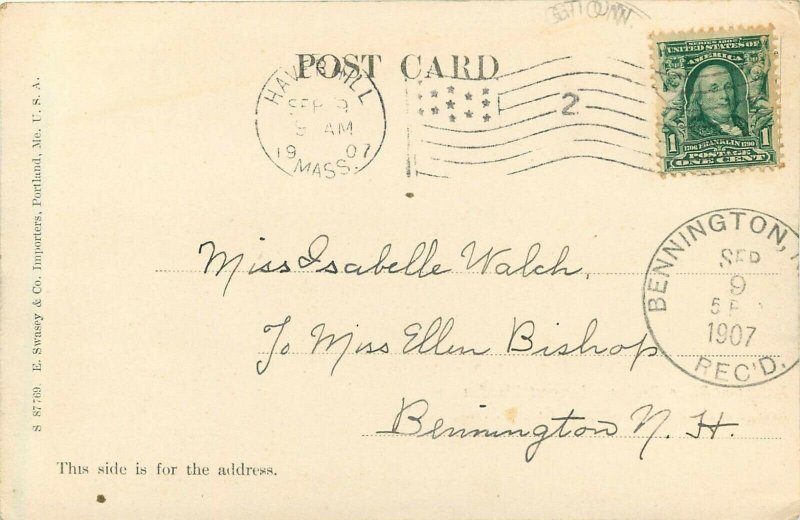 POST CARD
HAVERHILL
SEP 9
AM
19 07
MASS.
2
SERIES 1902
UNITED STATES OF
AMERICA
1 1706 FRANKLIN 1790 1
POSTAGE
ONE CENT
BENNINGTON, N
SEP
9
5 P
1907
REC'D.
Miss Isabelle Walch,
To Miss Ellen Bishop
Bennington N. H.
This side is for the address.
S 87769 E. Swasey & Co. Importers, Portland, Me. U. S. A.